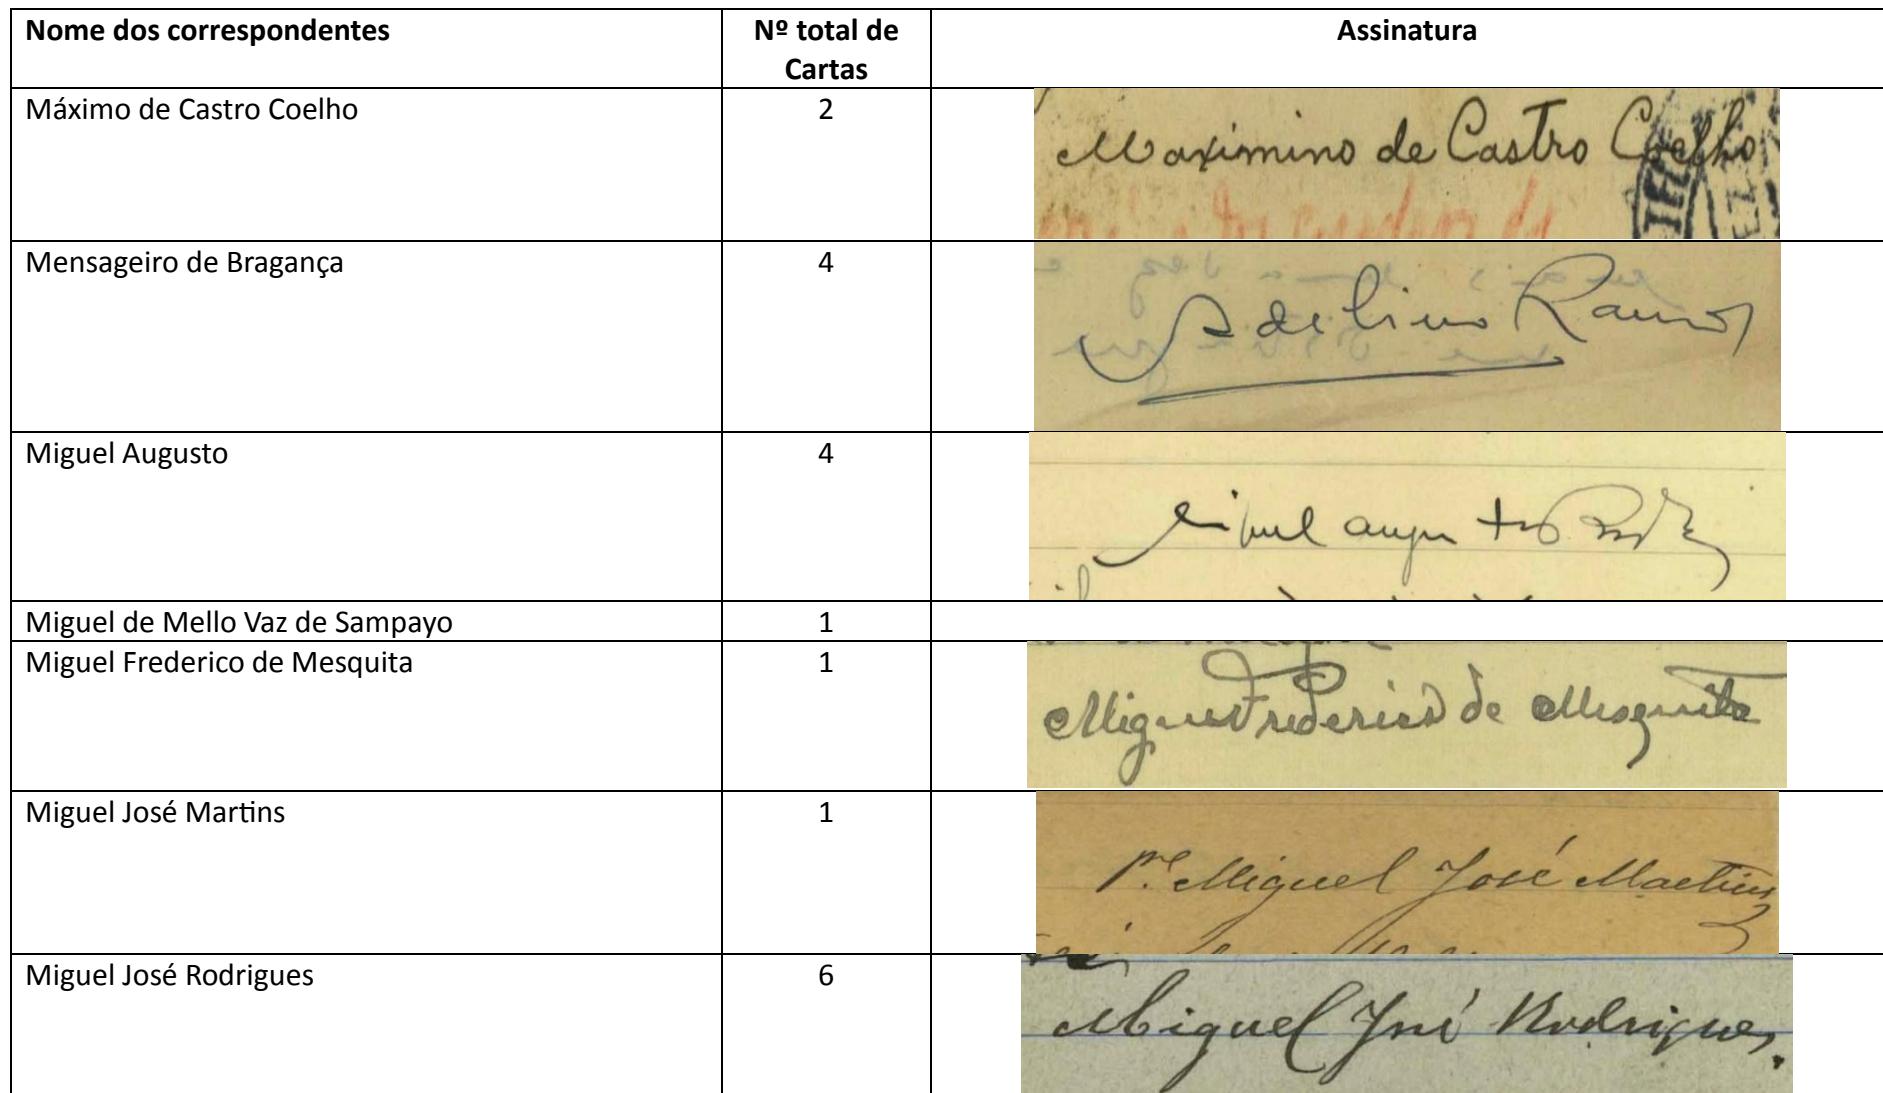 Nome dos correspondentes
Nº total de
Cartas
Assinatura
Máximo de Castro Coelho
2
Maximino de Castro Coelho
Mensageiro de Bragança
4
Adelino Ramos
Miguel Augusto
4
Miguel augusto
Miguel de Mello Vaz de Sampayo
1
Miguel Frederico de Mesquita
1
Miguel Frederico de Mesquita
Miguel José Martins
1
P.e Miguel José Martins
Miguel José Rodrigues
6
Miguel José Rodrigues.